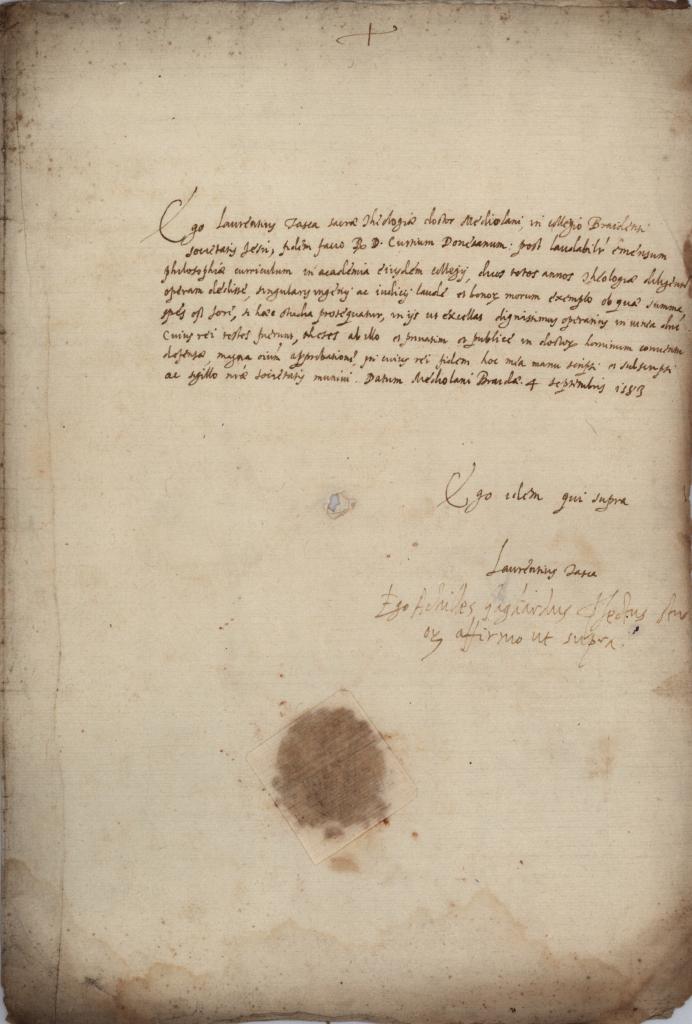 Ego Laurentius Tasca sacræ Theologiæ doctor Mediolani, in collegio Braidensi
societatis Jesu, fidem facio R. D. Curtium Donesanum: post laudabilé emensum
philosophiæ curriculum in academia eiusdem collegij, duos totos annos Theologiæ
operam dedisse, singularis ingenij ac iudicij laude et bonor morum exemplo ob quæ summa
spes est fore, si hæc studia prosequatur, in ijs ut excellas dignissimus operarius in vinea
cuius rei testes fuerunt, theses ab illo et privatim et publicè in doctor hominum conventu
defensæ, magna oium approbatione, in cuius rei fidem hoc mea manu scripsi et subscripsi
ac sigillo nræ societatis munivi. Datum Mediolani Braidæ. 4 septembris 1583
Ego idem qui supra
Laurentius Tasca
Ego Achilles gagliardus
affirmo ut supra.